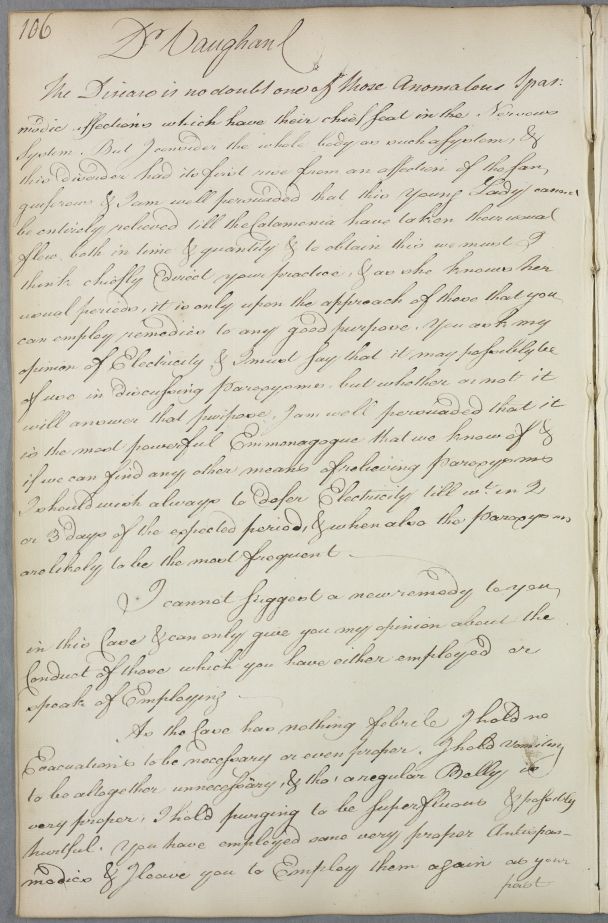 106
Dr Vaughan
The Disease is no doubt one of those Anomalous Spas:
modic affections which have their chief seat in the Nervous
System. But I consider the whole body as such a system, &
this disorder had its first rise from an affection of the
& I am well persuaded that this young Lady cannot
be entirely relieved till the Catamenia have taken their usual
flow both in time & quantity & to obtain this we must I
think chiefly direct your practice, & as she knows her
usual periods, it is only upon the approach of those that you
can employ remedies to any good purpose. You ask my
opinion of Electricity & I must say that it may possibly be
of use in discussing Paroxysms. but whether or not it
will answer that purpose, I am well persuaded that it
is the most powerful Emmenagogue that we know of &
if we can find any other means of relieving Paroxysms
I should wish always to defer Electricity till wt. in 2
or 3 days of the expected period, & when also the Paroxysms
are likely to be the most frequent
I cannot suggest a new remedy to you
in this Case & can only give you my opinion about the
Conduct of those which you have either employed or
speak of Employing
As the Case has nothing febrile I hold no
Evacuations to be necessary or even proper. I hold vomiting
to be altogether unnecessary, & tho' a regular Belly is
very proper, I hold purging to be superfluous & possibly
hurtful. You have employed some very proper Antispas-
modics & I leave you to Employ them again as your
past